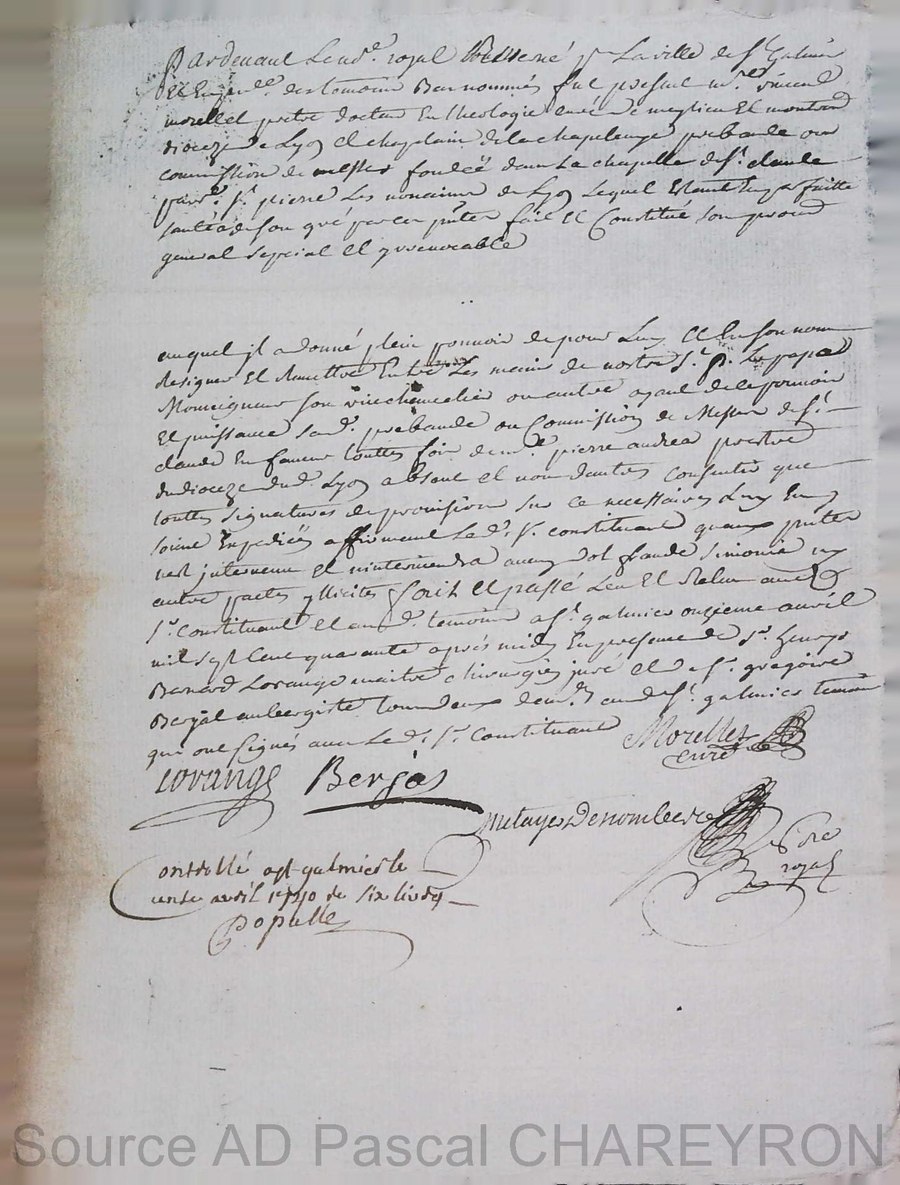 Pardevant le no.re royal Reservé p.r la ville de S.t Galmier
Et En p.nce des temoins Bas nommés fut present m.re vincent
morellet pretre docteur En theologie curé de meylieu Et montrond
dioceze de Lyon Et chapelain de la chapelenye prebande ou
commission de messes fondéé dans La chapelle de S.t claude
parr.e S.t pierre Les nonains de Lyon Lequel Estant En parfaitte
santé a de son gré par ces p.ntes fait Et Constitué son procur
general Special Et yrrevocable
auquel jl a donné plein pouvoir de pour Luy Et En son nom
resigner Et Remettre Entre Les mains de nostre S.t P. Le pape
Monseigneur son vice chancelier ou autre ayant de ce pouvoir
Et puissance sad. prebande ou Commission de Messes de S.t
claude En faveur touttes fois de m.re pierre andrea prestre
du dioceze dud. Lyon absent Et non dautres consentir que
touttes signatures de provision sur ce necessaires Luy En
soient Expediéés affirmant Led. S.r constituant quaux p.ntes
nest jntervenu Et ninterviendra aucun dol fraude Simonie ny
autre pactes yllicites fait Et passé Leu Et Relu aud.
S.r Constituant Et aux d. temoins a S.t galmier onzieme avril
mil Sept Cent quarante aprés midy En presence de S.r
Benard Lorange maitre chirurgien juré Et de S.r gregoire
Berjat aubergiste tous deux dem.t aud. S.t galmier temoins
qui ont Signés avec Led. S.r Constituant
Morellet
curé
Lorange Berjat
metayer Denombere
No.re
royal
Controllé a St galmier le
onze avril 1740 de six livres
Populle
Source AD Pascal CHAREYRON